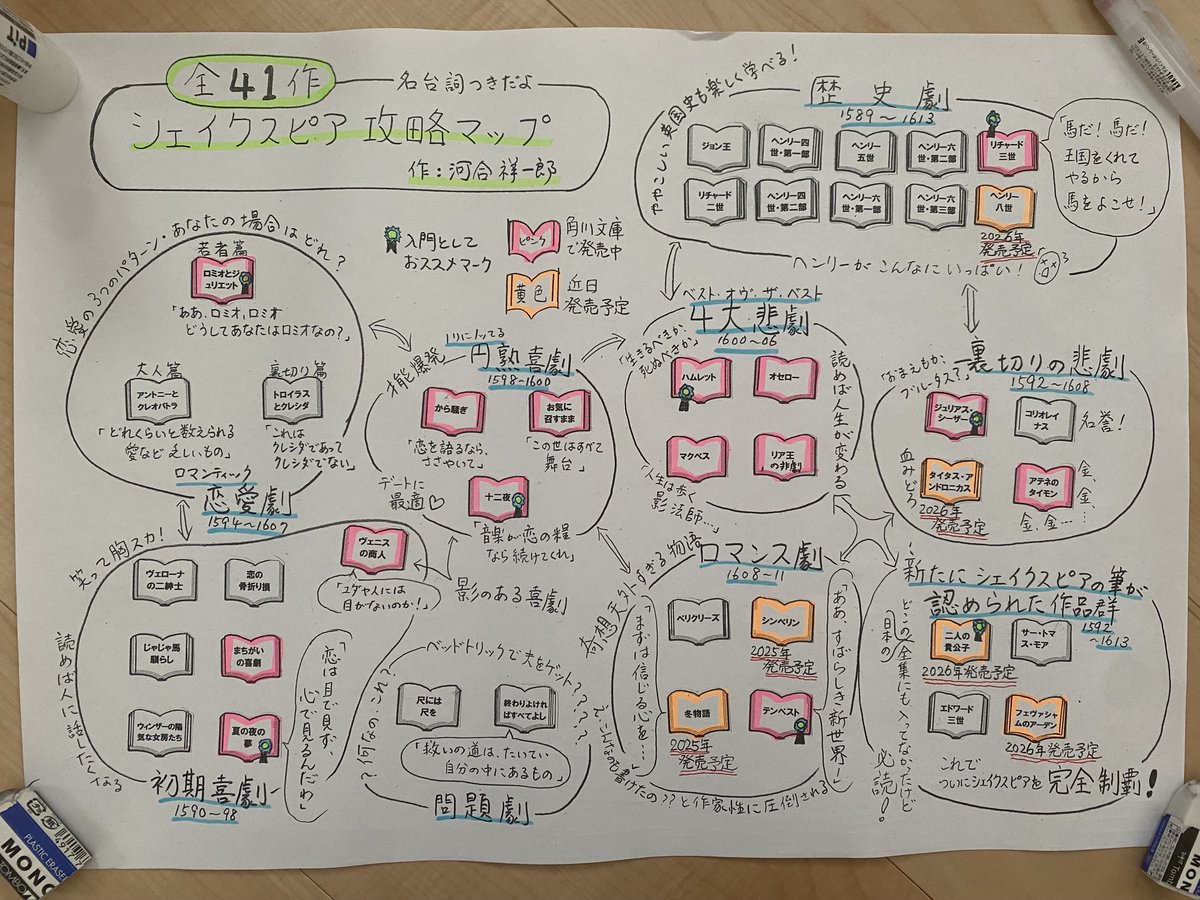 全41作
名台詞つきだよ
シェイクスピア攻略マップ
作：河合祥一郎
入門として
おススメマーク
ピンク
角川文庫
で発売中
黄色
近日
発売予定
ややこしい英国史も楽しく学べる！
歴史劇
1589〜1613
ジョン王
ヘンリー四
世・第一部
ヘンリー
五世
ヘンリー六
世・第二部
リチャード
三世
リチャード
二世
ヘンリー四
世・第二部
ヘンリー六
世・第一部
ヘンリー六
世・第三部
ヘンリー
八世
2026年
発売予定
「馬だ！馬だ！
王国をくれて
やるから
馬をよこせ！」
ヘンリーがこんなにいっぱい！
恋愛の3つのパターン・あなたの場合はどれ？
若者篇
ロミオとジ
ュリエット
「ああ、ロミオ、ロミオ
どうしてあなたはロミオなの？」
大人篇
アントニーと
クレオパトラ
「どれくらいと数えられる
愛など乏しいもの」
裏切り篇
トロイラス
とクレシダ
「これは
クレシダであって
クレシダでない」
ロマンティック
恋愛劇
1594〜1607
才能爆発
ノリにノッてる
円熟喜劇
1598〜1600
から騒ぎ
「恋を語るなら、
ささやいて」
お気に
召すまま
「この世はすべて
舞台」
デートに
最適♡
十二夜
「音楽が恋の糧
なら続けてくれ」
ベスト・オヴ・ザ・ベスト
4大悲劇
1600〜06
「生きるべきか、
死ぬべきか」
ハムレット
オセロー
マクベス
リア王
の悲劇
「人生は歩く
影法師…」
読めば人生が変わる
裏切りの悲劇
1592〜1608
「おまえもか、
ブルータス？」
ジュリアス・
シーザー
コリオレイ
ナス
名誉！
血みどろ
タイタス・ア
ンドロニカス
2026年
発売予定
アテネの
タイモン
金、
金、
金、金……
笑って胸スカ！
読めば人に話したくなる
ヴェローナ
の二紳士
恋の
骨折り損
じゃじゃ馬
馴らし
まちがい
の喜劇
ウィンザーの陽
気な女房たち
夏の夜の
夢
「恋は目で見ず、
心で見るんだわ」
初期喜劇
1590〜98
ヴェニス
の商人
「ユダヤ人には
目がないのか！」
影のある喜劇
え？何なの、これ？
ベッドトリックで夫をゲット？？？？
尺には
尺を
終わりよけれ
ばすべてよし
「救いの道は、たいてい
自分の中にあるもの」
問題劇
奇想天外すぎる物語
ロマンス劇
1608〜11
「まずは信じる心を…」
ペリクリーズ
シンベリン
2025年
発売予定
冬物語
2025年
発売予定
テンペスト
「ああ、すばらしき新世界！」
え、こんなのも書けたの？？と作家性に圧倒される
新たにシェイクスピアの筆が
認められた作品群
1592
〜1613
日本の
どこの全集にも入ってなかったけど
必読！
二人の
貴公子
2026年発売予定
サー・トマ
ス・モア
エドワード
三世
フェヴァシャ
ムのアーデン
2026年発売予定
これで
ついにシェイクスピアを完全制覇！
PiT
MONO
PLASTIC ERASER
TOMBOW
MONO